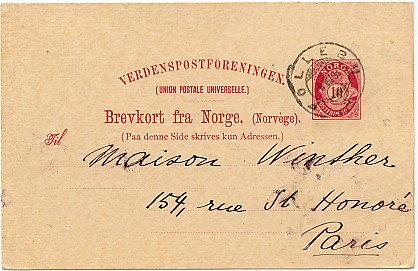 VERDENSPOSTFORENINGEN.
(UNION POSTALE UNIVERSELLE.)
Brevkort fra Norge. (Norvège).
(Paa denne Side skrives kun Adressen.)
NORGE
10
Til
Maison Winther
154, rue St. Honoré
Paris